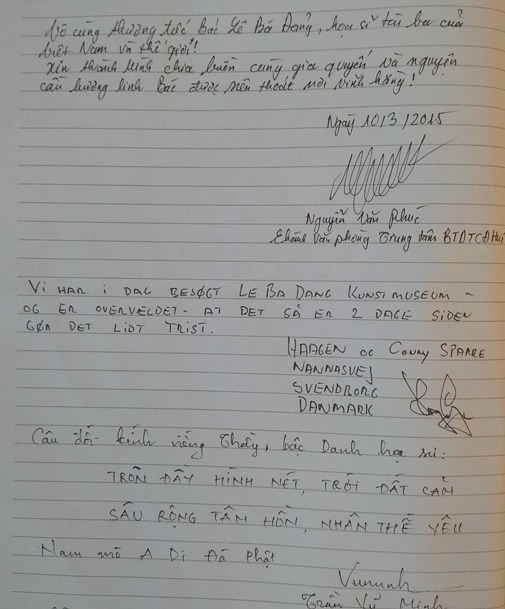 Vô cùng thương tiếc Bác Lê Bá Đảng, họa sĩ tài ba của
Việt Nam và thế giới!
Xin thành kính chia buồn cùng gia quyến và nguyện
cầu hương linh Bác được siêu thoát nơi vĩnh hằng!
Ngày 10/3/2015
Nguyễn Văn Phúc
Chánh Văn phòng Trung tâm BTDTCĐ Huế
VI HAR I DAG BESØGT LE BA DANG KUNSTMUSEUM -
OG ER OVERVELDET - AT DET SÅ ER 2 DAGE SIDEN
GØR DET LIDT TRIST.
HAAGEN OG CONNY SPARRE
NANNASVEJ
SVENDBORG
DANMARK
Câu đối kính viếng Thầy, bậc Danh họa sư:
TRÒN ĐẦY HÌNH NÉT, TRỜI ĐẤT CẢM
SÂU RỘNG TÂM HỒN, NHÂN THẾ YÊU
Nam mô A Di Đà Phật
Trần Vũ Minh